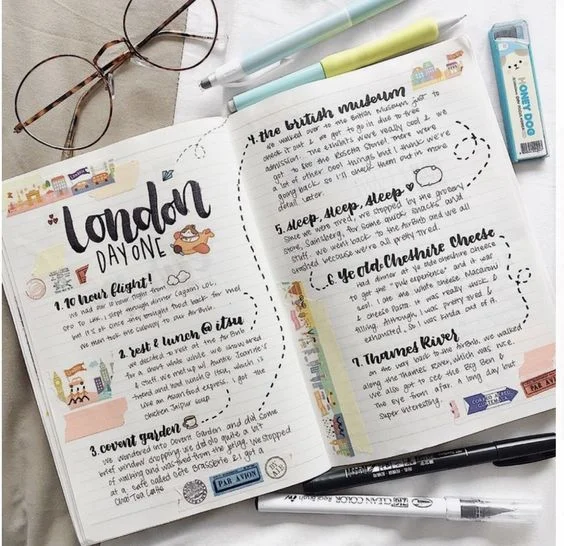 london
DAY ONE
1. 10 hour flight!
We had our 10 hour flight from
SFO to LHR. I slept through dinner (again) LOL,
but it's ok since they brought food back for me!
We then took the to our AirBnb.
2. rest & lunch @ itsu
We decided to rest at the AirBnb
for a short while. We showered
& stuff. We met up w/ Auntie Jeanne's
friend and had lunch @ Itsu, which is
like an Asian food express. I got the
chicken soup
3. covent garden
We wandered into Covent Garden and did some
brief window shopping. We did do quite a bit
of walking and was tired from the jetlag. We stopped
at a cafe called Cote Brasserie & I got a
Latte
4. the british museum
We walked over to the British Museum just to
check it out & we got to go in due to free
admission. The exhibits were really cool & we
got to see the Rosetta Stone! There were
a lot of other cool things but I think we're
going back, so I'll check them out in more
detail later.
5. sleep, sleep, sleep
Since we were tired, we stopped by the grocery
store, Sainsberg, for some quick snacks and
stuff. We went back to the AirBnb and we all
crashed because we're all pretty tired.
6. Ye Old Cheshire Cheese
Had dinner at ye olde cheshire cheese
to get the "pub experience" and it was
so nice! I ate the whole Macaroni
& cheese pasta. It was really thick &
filling. Although, I was pretty tired &
exhausted, so I was kinda out of it.
7. Thames River
On the way back to the AirBnb, we walked
along the Thames River, which was nice.
We also got to see the Big Ben &
The Eye from afar. A long day but
super interesting.
PAR AVION
PAR AVION
HONEY DOG
CLEAN COLOR